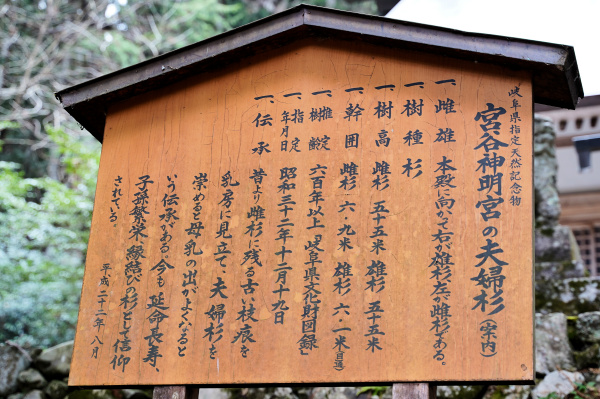 岐阜県指定天然記念物
宮谷神明宮の夫婦杉(宇内)
一、雌雄 本殿に向かって右が雄杉左が雌杉である。
一、樹種 杉
一、樹高 雌杉 五十五米 雄杉 五十五米
一、幹囲 雌杉 六・九米 雄杉 六・一米(目通)
一、推定樹齢 六百年以上「岐阜県文化財図録」
一、指定年月日 昭和三十二年十二月十九日
一、伝承 昔より雌杉に残る古い枝痕を
乳房に見立て、夫婦杉を
崇めると母乳の出がよくなると
いう伝承がある 今も 延命長寿、
子孫繁栄、縁結びの杉として信仰
されている。
平成二十二年八月